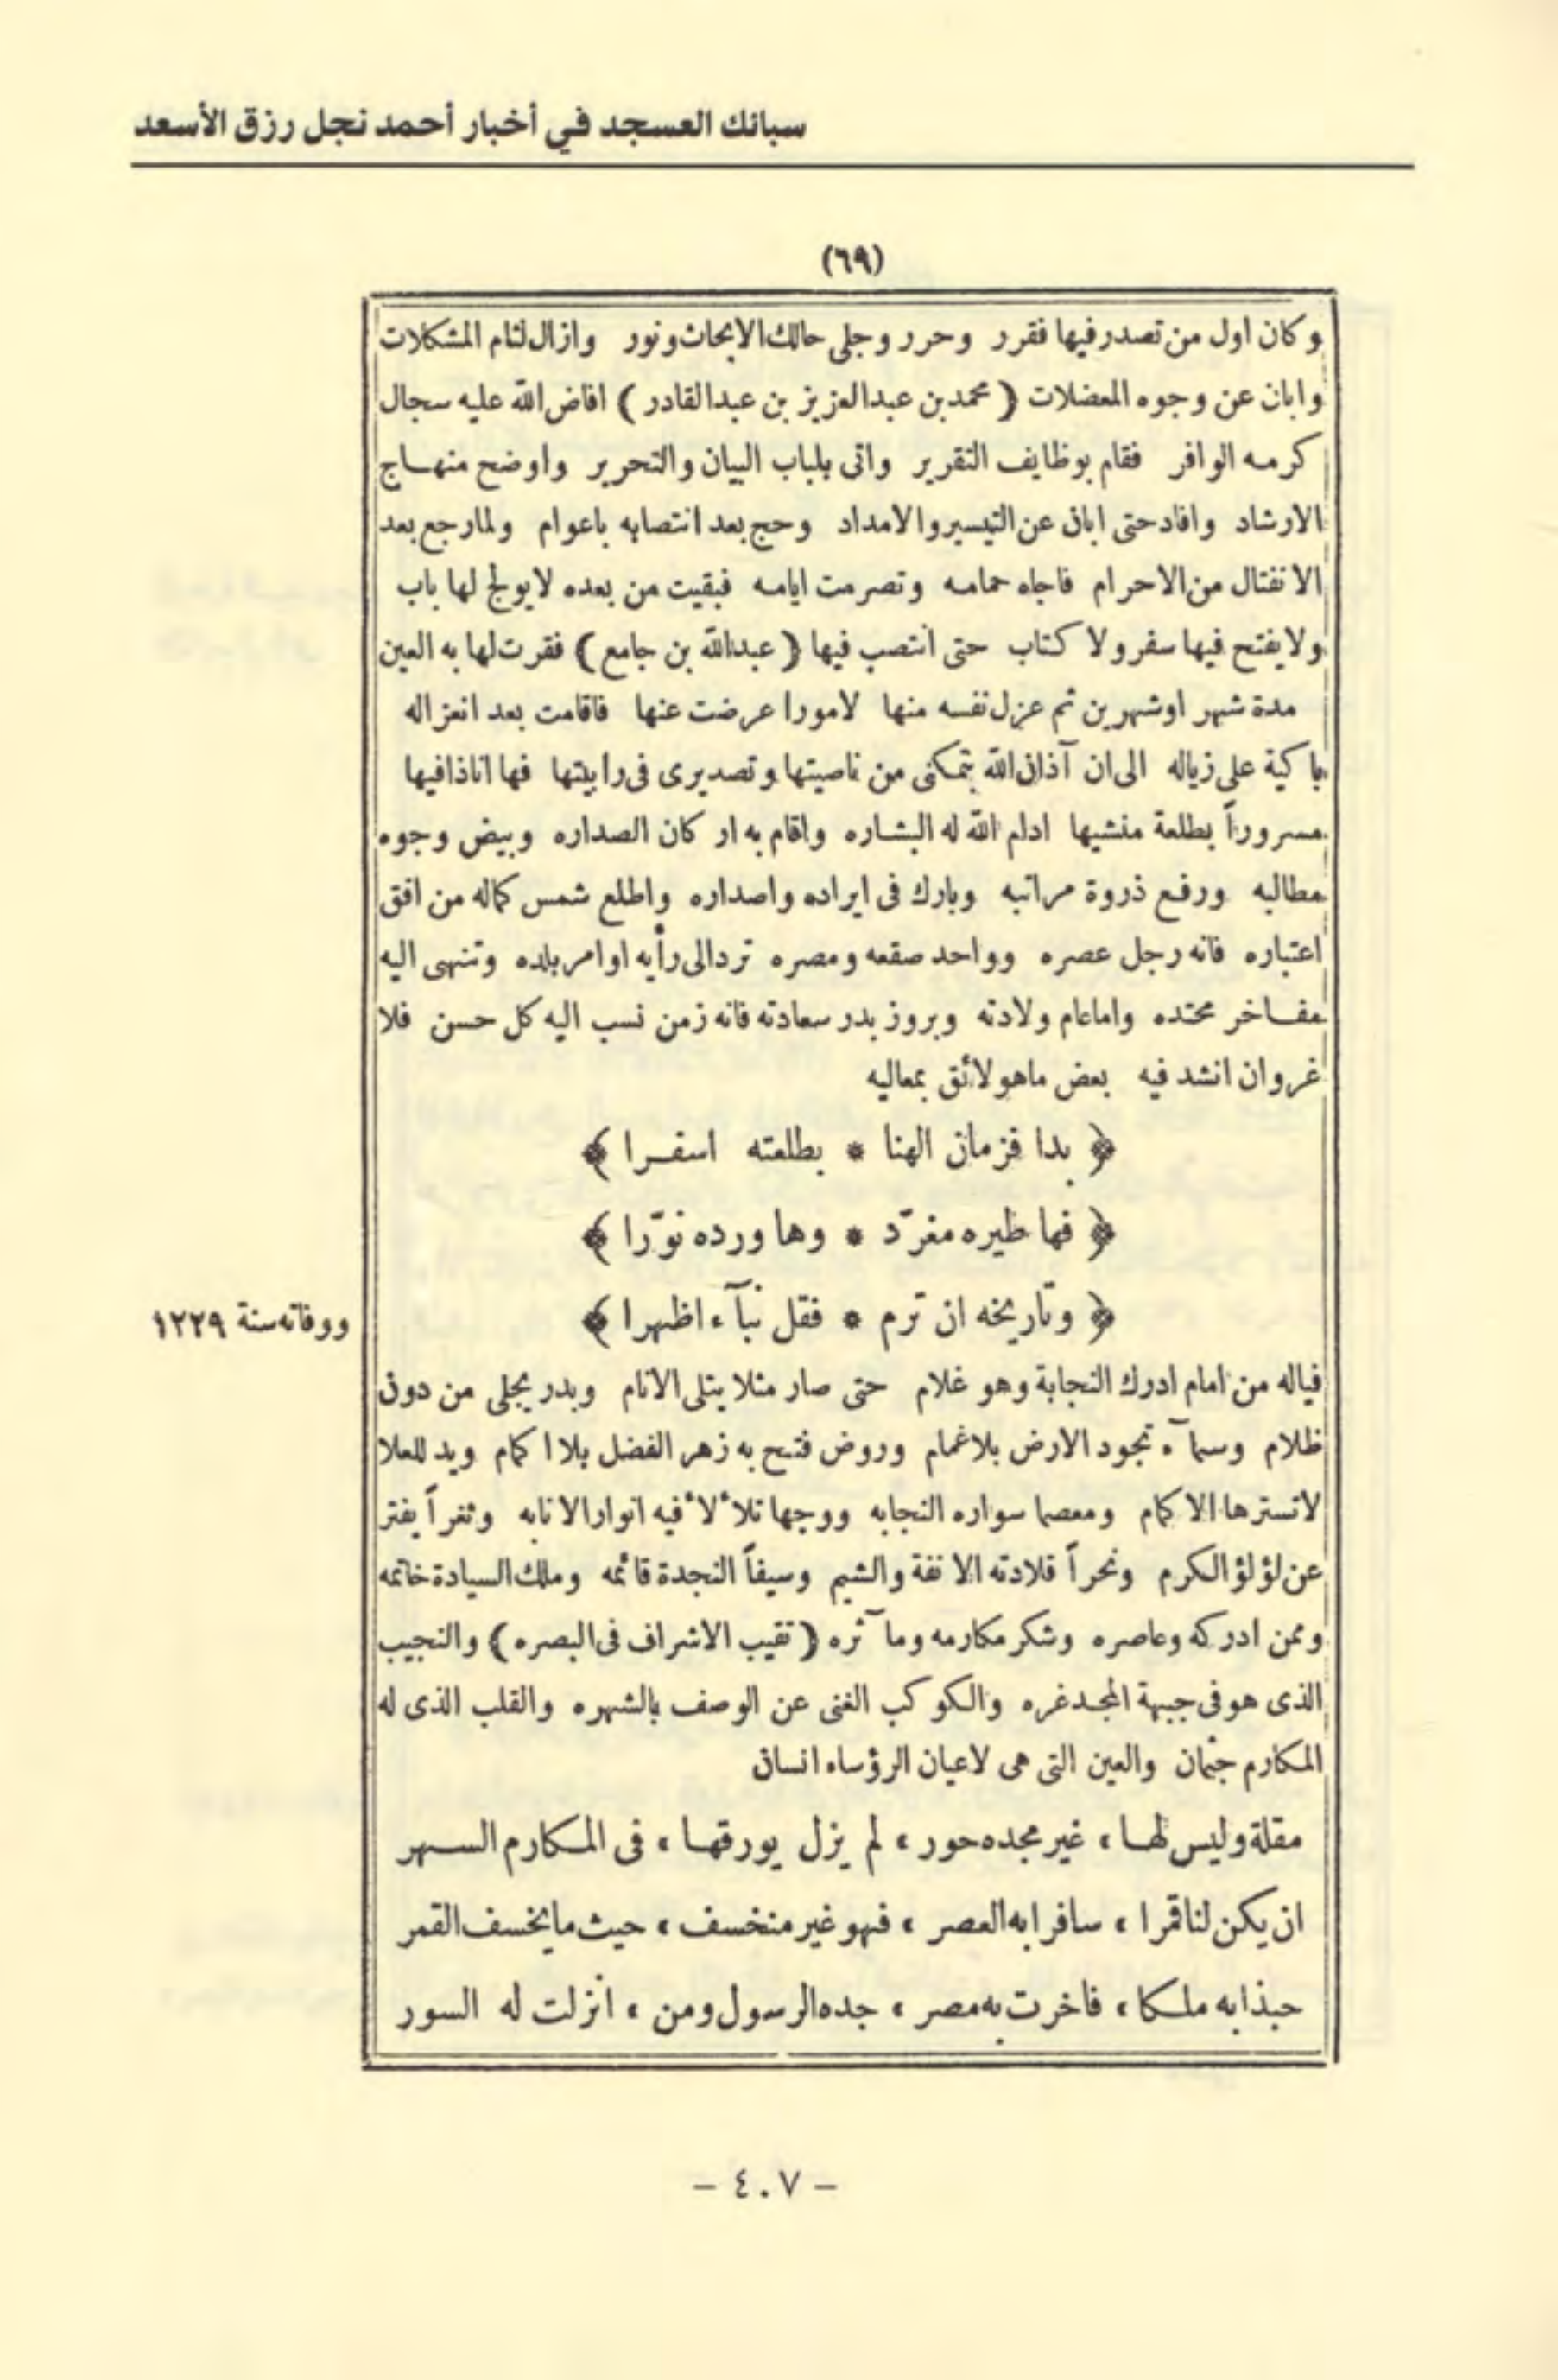 سبائك العسجد في أخبار أحمد نجل رزق الأسعد
(٦٩)
وكان اول من تصدر فيها فقرر وحرر وجلى حالك الابحاث ونور وازال لثام المشكلات
وابان عن وجوه المعضلات ( محمد بن عبد العزيز بن عبد القادر ) افاض الله عليه سجال
كرمه الوافر فقام بوظايف التقرير واتى بلباب البيان والتحرير واوضح منهاج
الارشاد وافاد حتى ابان عن التيسير والامداد وحج بعد انتصابه باعوام ولما رجع بعد
الانفتال من الاحرام فاجاه حمامه وتصرمت ايامه فبقيت من بعده لا يولج لها باب
ولا يفتح فيها سفر ولا كتاب حتى انتصب فيها ( عبد الله بن جامع ) فقرت لها به العين
مدة شهر اوشهرين ثم عزل نفسه منها لامورا عرضت عنها فاقامت بعد انعزاله
باكية على زياله الى ان آذان الله بتمكنى من ناصيتها وتصديرى فى رابيتها فها اناذا فيها
مسروراً بطلعة منشيها ادام الله له البشاره واقام به اركان الصداره وبيض وجوه
مطالبه ورفع ذروة مراتبه وبارك فى ايراده واصداره واطلع شمس كماله من افق
اعتباره فانه رجل عصره وواحد صقعه ومصره ترد الى رأيه اوامر بلده وتنهى اليه
مفاخر محتده واما عام ولادته وبروز بدر سعادته فانه زمن نسب اليه كل حسن فلا
غروان انشد فيه بعض ما هو لائق بمعاليه
﴿ بدا فزمان الهنا * بطلعته اسفرا ﴾
﴿ فها طيره مغرّد * وها ورده نوّرا ﴾
﴿ وتاريخه ان ترم * فقل نبآء اظهرا ﴾
ووفاته سنة ١٢٢٩
فياله من امام ادرك النجابة وهو غلام حتى صار مثلا يتلى الانام وبدر يجلى من دون
ظلام وسمآء تجود الارض بلا غمام وروض فتح به زهر الفضل بلا اكمام ويد للعلا
لا تسترها الاكمام ومعصما سواره النجابه ووجها تلألأ فيه انوار الانابه وثغراً يفتر
عن لؤلؤ الكرم ونحراً قلادته الانفة والشيم وسيفاً النجدة قائمه وملك السيادة خاتمه
وممن ادركه وعاصره وشكر مكارمه ومآثره ( نقيب الاشراف فى البصره ) والنجيب
الذى هو فى جبهة المجد غره والكوكب الغنى عن الوصف بالشهره والقلب الذى له
المكارم جثمان والعين التى هى لاعيان الرؤساء انسان
مقلة وليس لها ، غير مجده حور ، لم يزل يورقها ، فى المكارم السهر
ان يكن لنا قمرا ، سافرا به العصر ، فهو غير منخسف ، حيث ما يخسف القمر
حبذا به ملكا ، فاخرت به مصر ، جده الرسول ومن ، انزلت له السور
- ٤٠٧ -